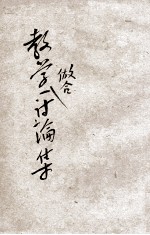 教学做合一讨论集